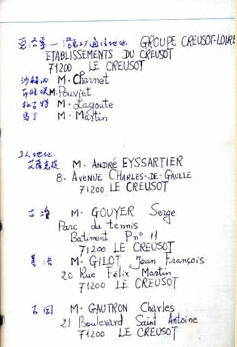 GROUPE CREUSOT-LOIRE
ETABLISSEMENTS DU CREUSOT
71200 LE CREUSOT
M. Charnet
M. Pouvjet
M. Lagoute
马丁 M. Martin
工人地址
M. ANDRÉ EYSSARTIER
8. AVENUE CHARLES-DE-GAULLE
71200 LE CREUSOT
M. GOUYER Serge
Parc du tennis
Batiment P n° 11
71200 LE CREUSOT
M. GILOT Jean François
20 Rue Félix Martin
71200 LE CREUSOT
M. GAUTRON Charles
21 Boulevard Saint Antoine
71200 LE CREUSOT